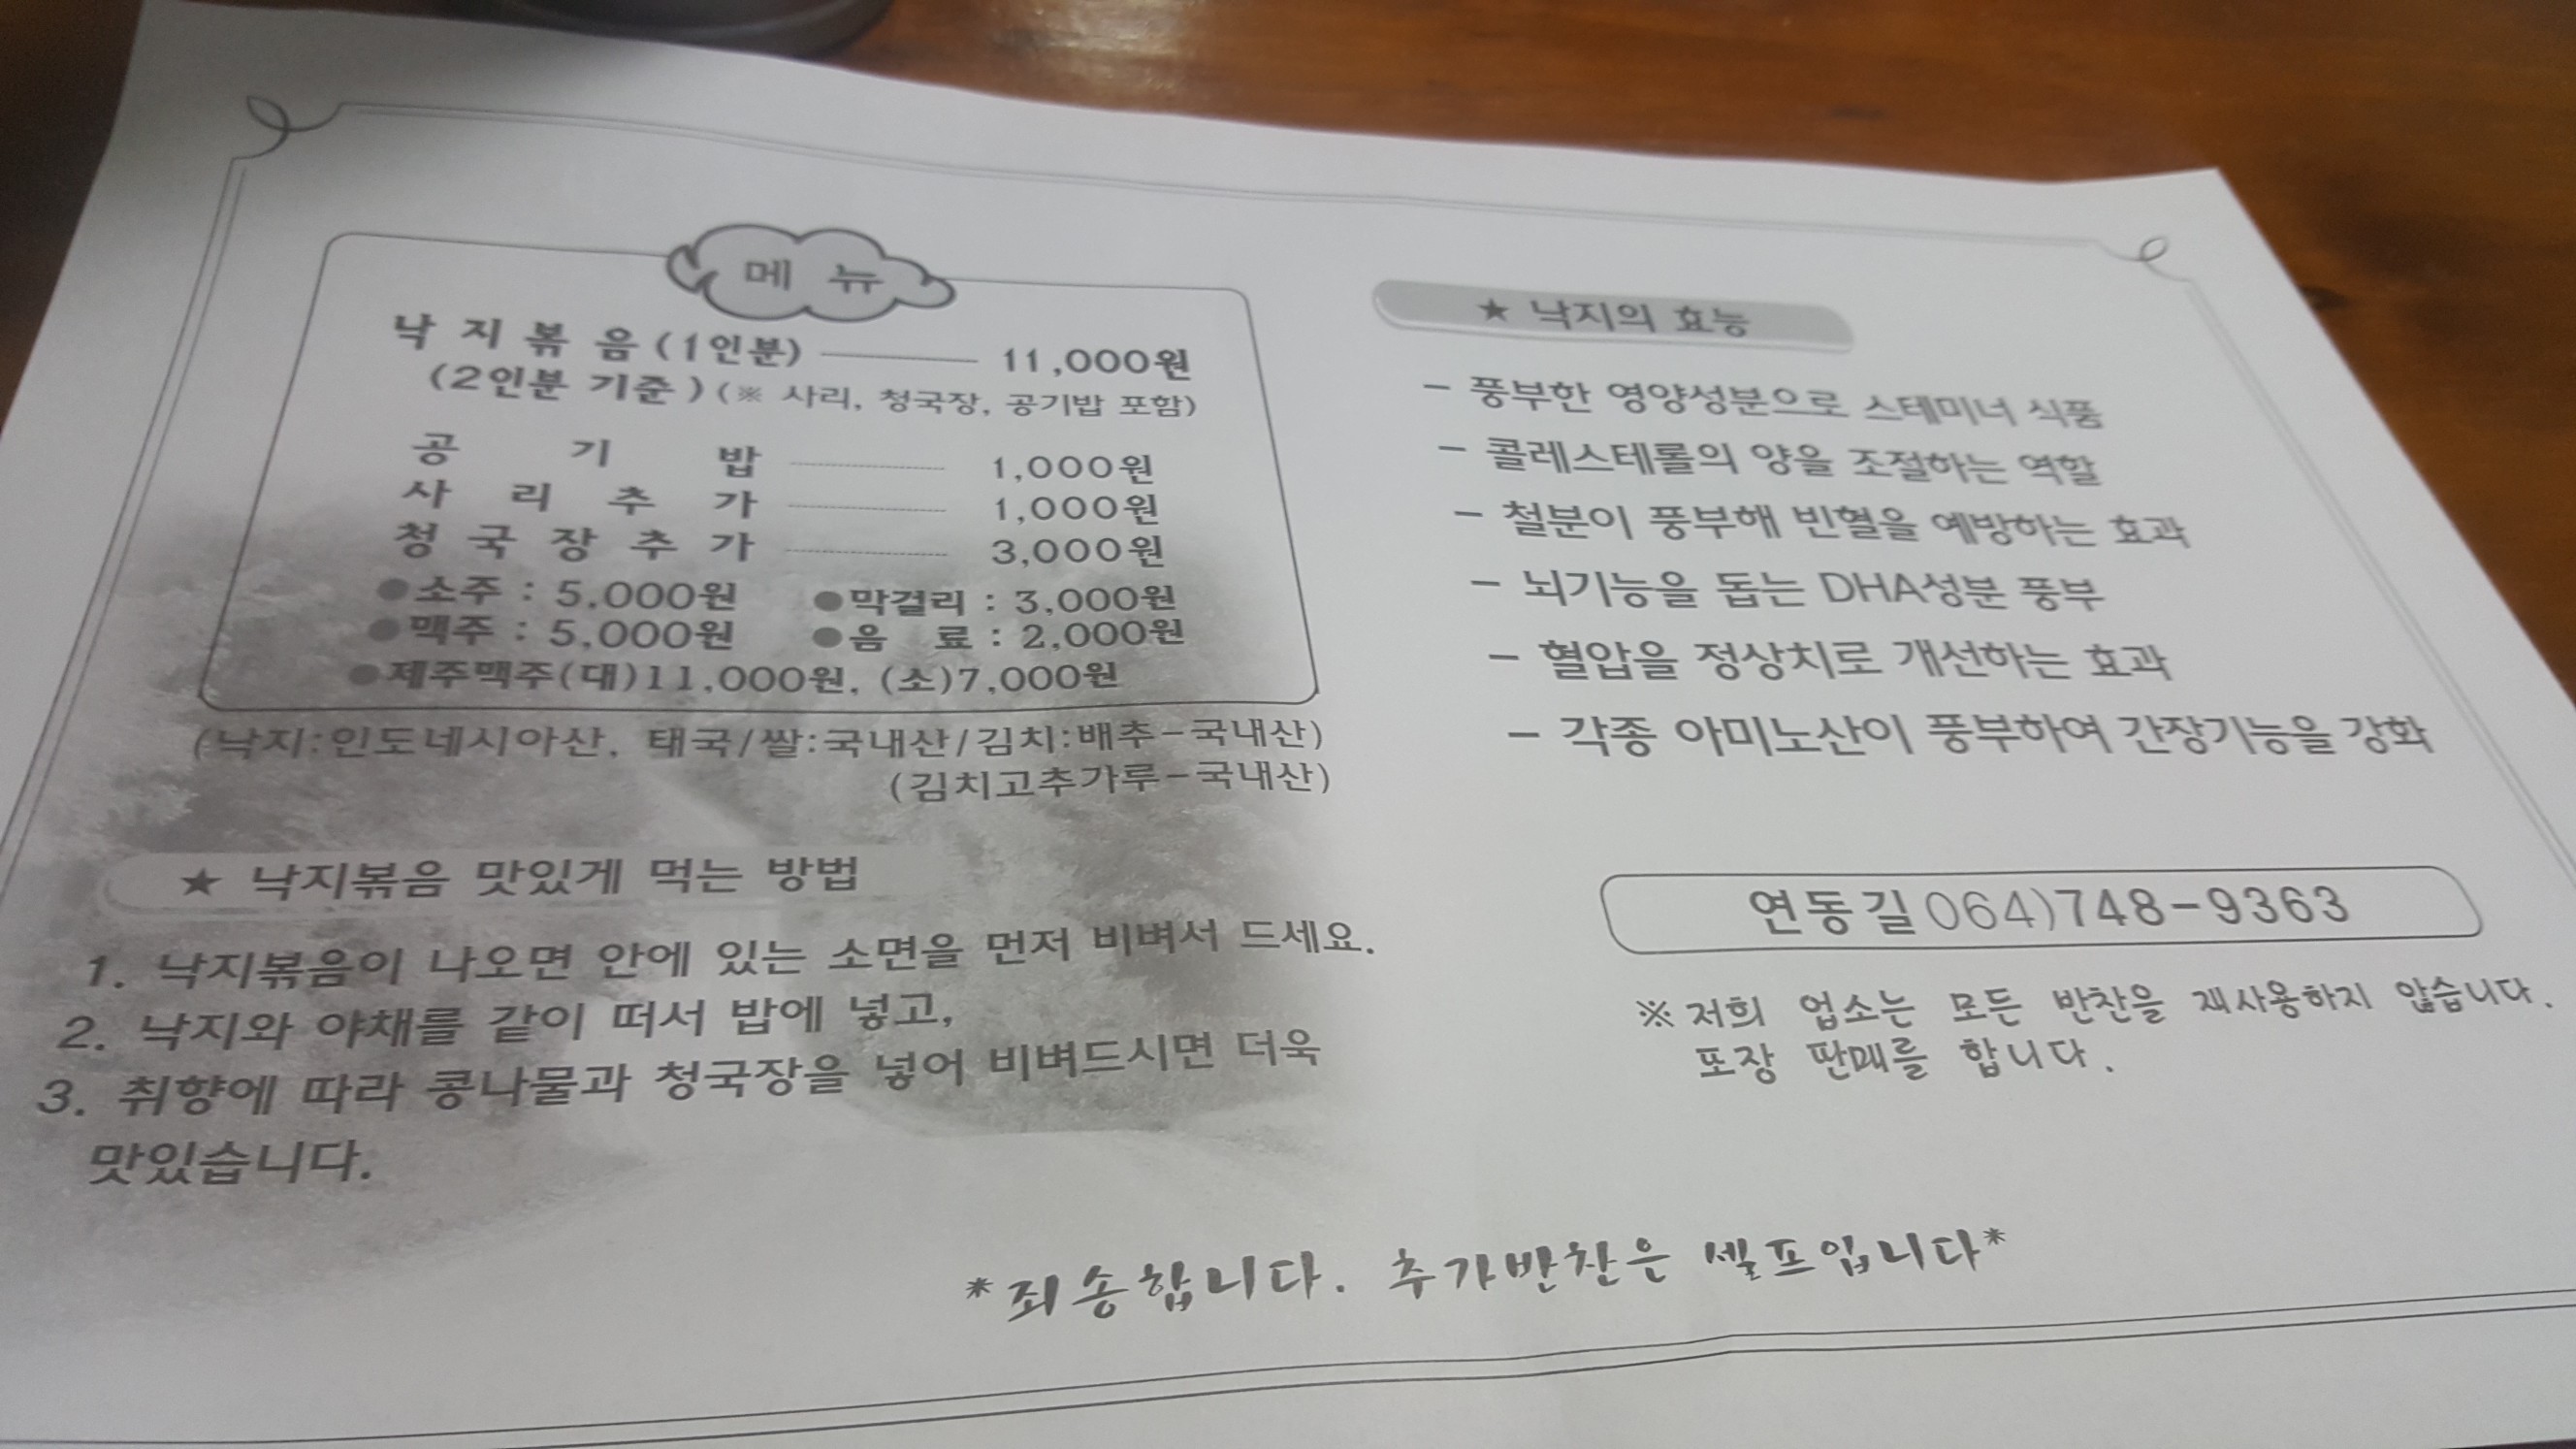 메 뉴
낙 지 볶 음 (1인분) 11,000원
(2인분 기준) (※ 사리, 청국장, 공기밥 포함)
공 기 밥 1,000원
사 리 추 가 1,000원
청 국 장 추 가 3,000원
●소주 : 5,000원 ●막걸리 : 3,000원
●맥주 : 5,000원 ●음 료 : 2,000원
●제주맥주(대)11,000원, (소)7,000원
(낙지:인도네시아산, 태국/쌀:국내산/김치:배추-국내산)
(김치고추가루-국내산)
★ 낙지볶음 맛있게 먹는 방법
1. 낙지볶음이 나오면 안에 있는 소면을 먼저 비벼서 드세요.
2. 낙지와 야채를 같이 떠서 밥에 넣고,
3. 취향에 따라 콩나물과 청국장을 넣어 비벼드시면 더욱
맛있습니다.
★ 낙지의 효능
- 풍부한 영양성분으로 스테미너 식품
- 콜레스테롤의 양을 조절하는 역할
- 철분이 풍부해 빈혈을 예방하는 효과
- 뇌기능을 돕는 DHA성분 풍부
- 혈압을 정상치로 개선하는 효과
- 각종 아미노산이 풍부하여 간장기능을 강화
연동길 064)748-9363
※ 저희 업소는 모든 반찬을 재사용하지 않습니다.
포장 판매를 합니다.
*죄송합니다. 추가반찬은 셀프입니다*